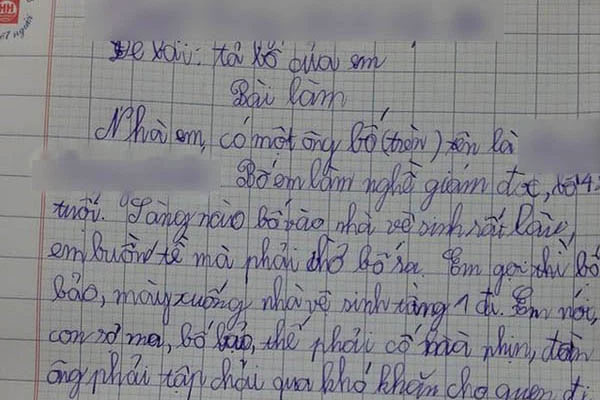 Đề bài: tả bố của em
Bài làm
Nhà em, có một ông bố (trên) tên là
Bố em làm nghề giám đốc, bố 4
tuổi. Sáng nào bố vào nhà vệ sinh rất lâu,
em buồn tè mà phải chờ bố ra. Em gọi thì bố
bảo, mày xuống nhà vệ sinh tầng 1 đi. Em nói,
con sợ ma, bố bảo, thế phải cố mà nhịn, đàn
ông phải tập trải qua khó khăn cho quen đi